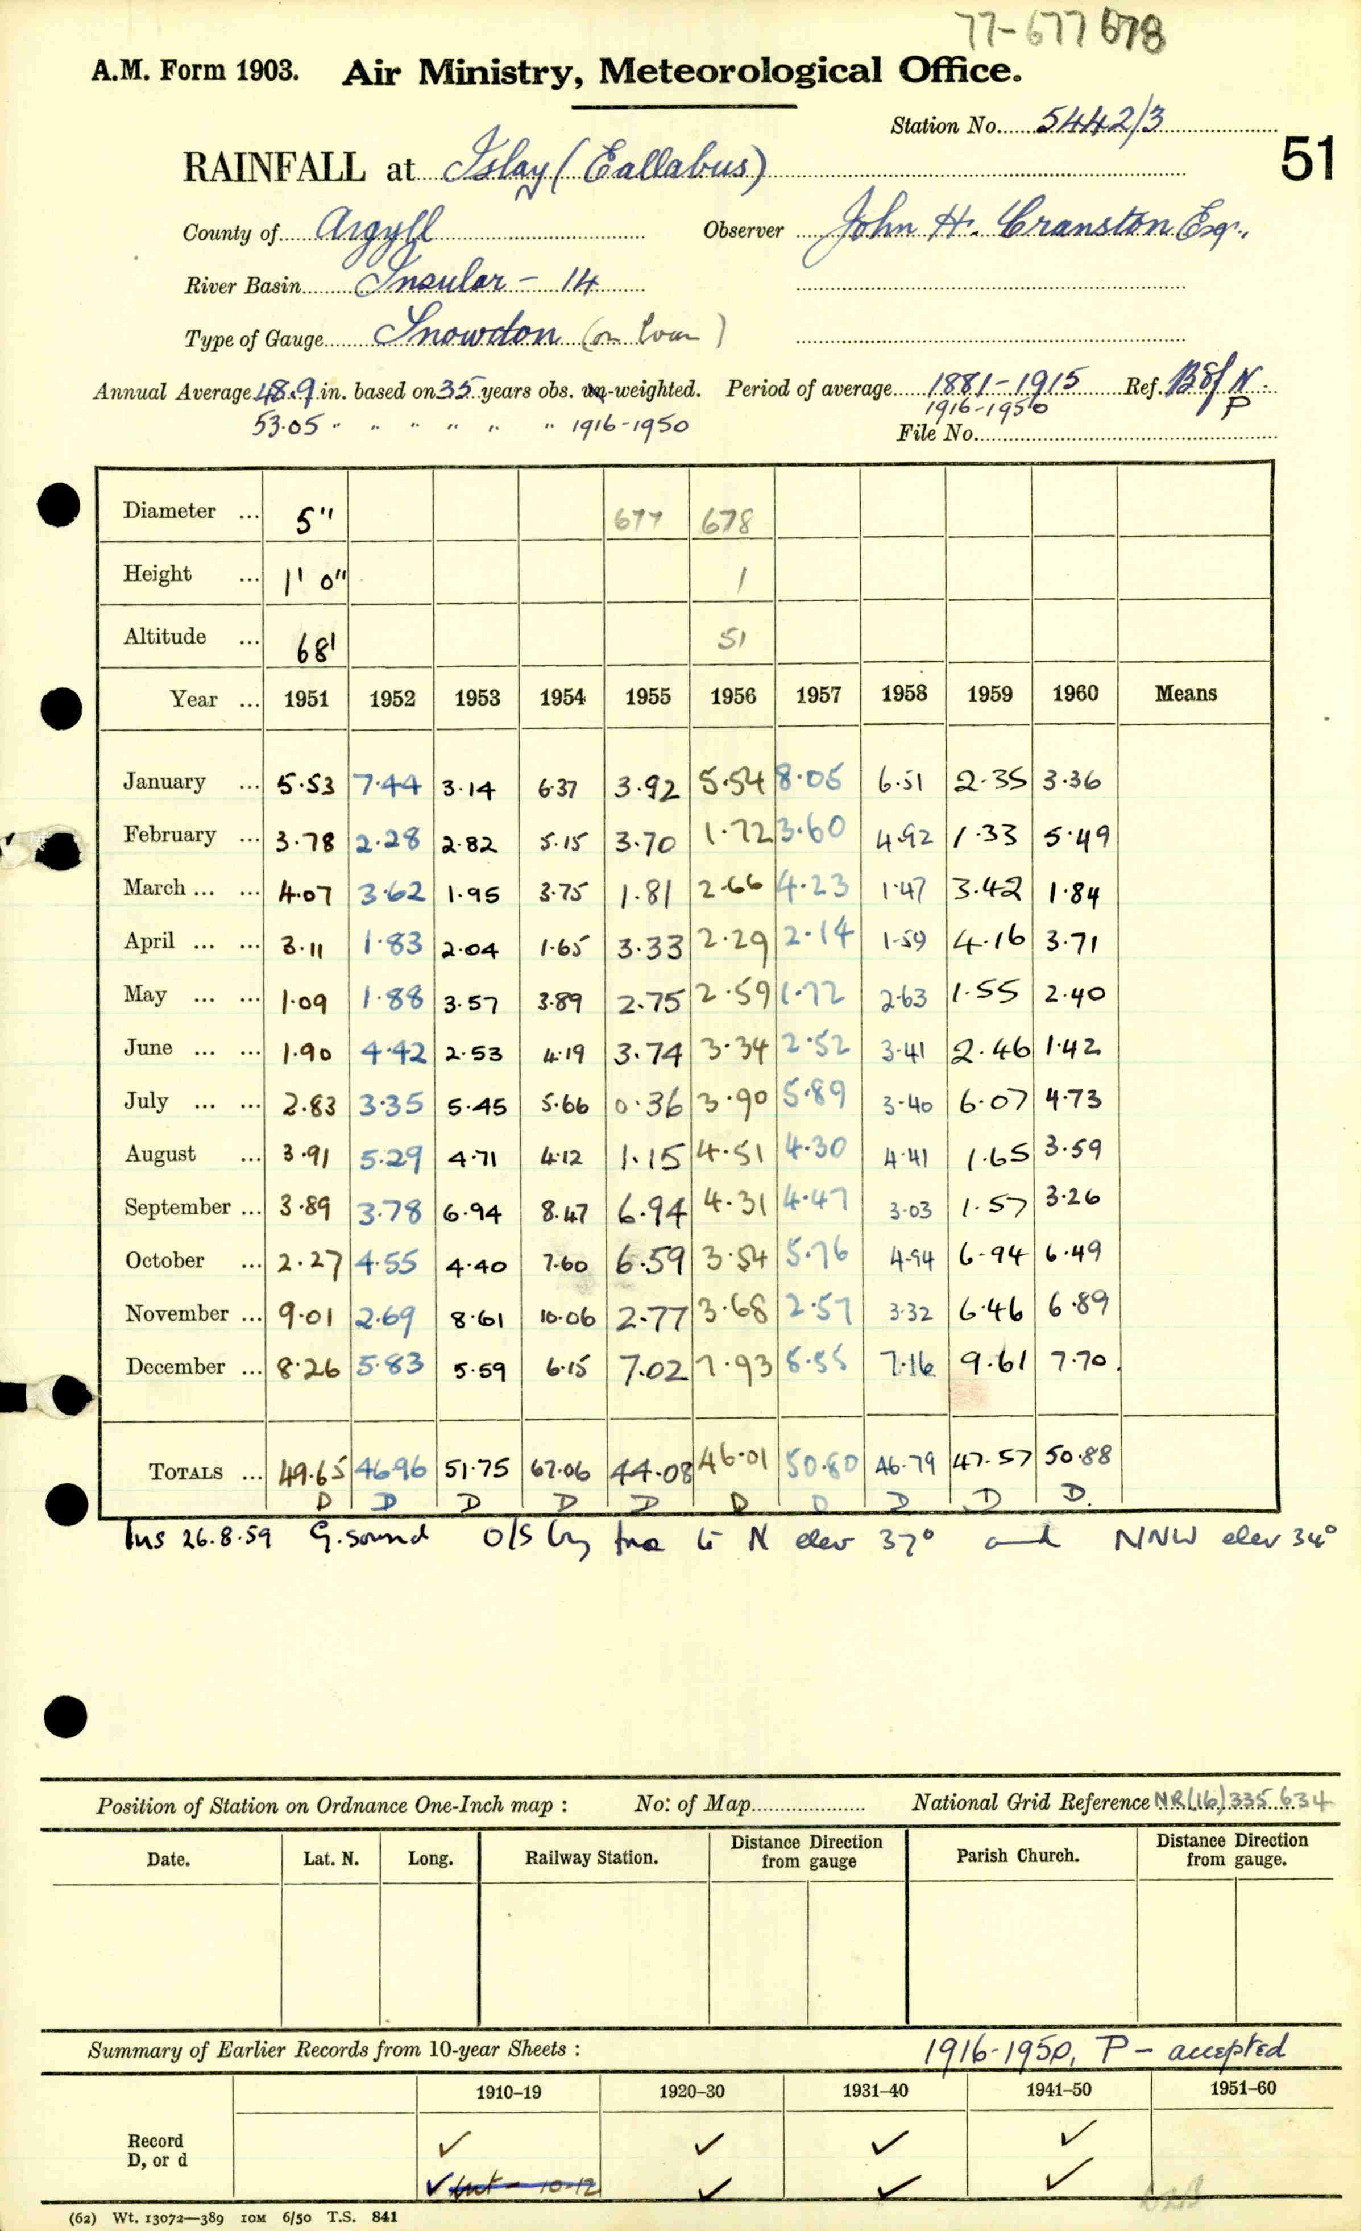 77-677 678
A.M. Form 1903. Air Ministry, Meteorological Office.
Station No. 5442/3
51
RAINFALL at Islay (Eallabus)
County of Argyll Observer John H. Cranston Esq.,
River Basin Insular - 14
Type of Gauge Snowdon (on loan)
Annual Average 48.9 in. based on 35 years obs. un-weighted. Period of average 1881-1915 Ref. B of N.
53.05 " " " " " " 1916-1950 1916-1950 P
File No.
Diameter ... 5" 677 678
Height ... 1' 0" 1
Altitude ... 68' 51
Year ... 1951 1952 1953 1954 1955 1956 1957 1958 1959 1960 Means
January ... 5.53 7.44 3.14 6.37 3.92 5.54 8.05 6.51 2.35 3.36
February ... 3.78 2.28 2.82 5.15 3.70 1.72 3.60 4.92 1.33 5.49
March ... ... 4.07 3.62 1.95 3.75 1.81 2.66 4.23 1.47 3.42 1.84
April ... ... 3.11 1.83 2.04 1.65 3.33 2.29 2.14 1.59 4.16 3.71
May ... ... 1.09 1.88 3.57 3.89 2.75 2.59 1.72 2.63 1.55 2.40
June ... ... 1.90 4.42 2.53 4.19 3.74 3.34 2.52 3.41 2.46 1.42
July ... ... 2.83 3.35 5.45 5.66 0.36 3.90 5.89 3.40 6.07 4.73
August ... 3.91 5.29 4.71 4.12 1.15 4.51 4.30 4.41 1.65 3.59
September ... 3.89 3.78 6.94 8.47 6.94 4.31 4.47 3.03 1.57 3.26
October ... 2.27 4.55 4.40 7.60 6.59 3.54 5.76 4.94 6.94 6.49
November ... 9.01 2.69 8.61 10.06 2.77 3.68 2.57 3.32 6.46 6.89
December ... 8.26 5.83 5.59 6.15 7.02 7.93 5.55 7.16 9.61 7.70
TOTALS ... 49.65 46.96 51.75 67.06 44.08 46.01 50.80 46.79 47.57 50.88
D D D D D D D D D D.
Ins 26.8.59 G. sound O/S by tree to N elev 37° and NNW elev 34°
Position of Station on Ordnance One-Inch map : No: of Map National Grid Reference NR(16)335 634
Date. Lat. N. Long. Railway Station. Distance Direction from gauge Parish Church. Distance Direction from gauge.
Summary of Earlier Records from 10-year Sheets : 1916-1950, P - accepted
1910–19 1920–30 1931–40 1941–50 1951–60
Record ✓ ✓ ✓ ✓
D, or d ✓ but - 10-12 ✓ ✓ ✓
(62) Wt. 13072—389 10M 6/50 T.S. 841